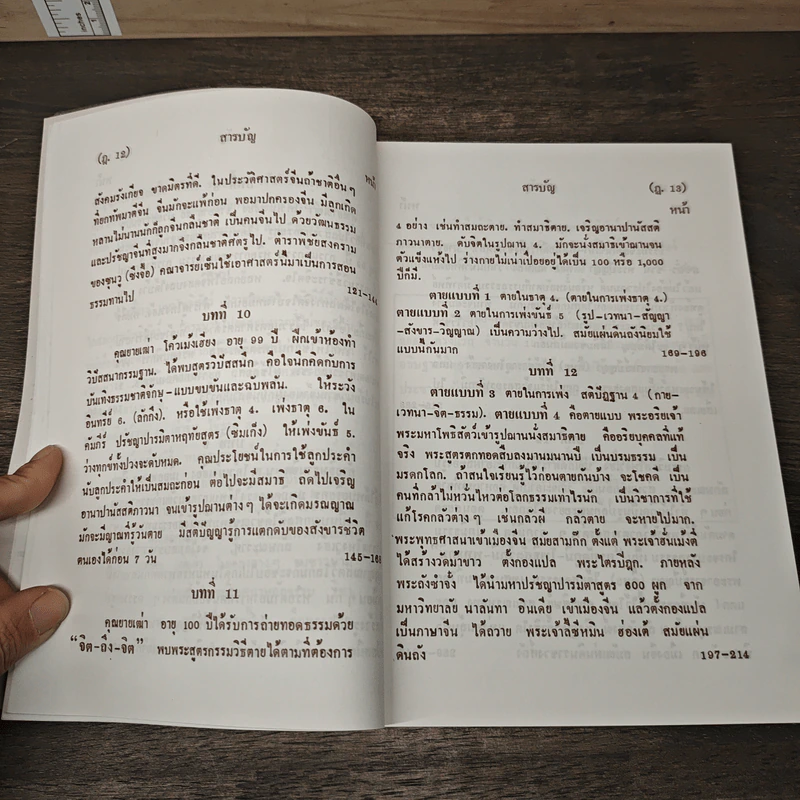 (ฏ. 12)
สารบัญ
หน้า
สังคมรังเกียจ ขาดมิตรที่ดี. ในประวัติศาสตร์จีนถ้าชาติอื่นๆ
ที่ยกทัพมาตีจีน จีนมักจะแพ้ก่อน พอมาปกครองจีน มีลูกเกิด
หลานไม่นานนักก็ถูกจีนกลืนชาติ เป็นคนจีนไป ด้วยวัฒนธรรม
และปรัชญาจีนที่สูงมากจึงกลืนชาติศัตรูไป. ตำราพิชัยสงคราม
ของซุนวู (ซึงจื้อ) คณาจารย์เซ็นใช้เอาศาสตร์นี้มาเป็นการสอน
ธรรมทานไป
121-144
บทที่ 10
คุณยายเฒ่า โค้วเม้งเฮียง อายุ 99 ปี ฝึกเข้าห้องทำ
วิปัสสนากรรมฐาน. ได้พบสูตรวิปัสสนึก คือใจนึกคิดกับการ
บันเทิงธรรมชาติจักษุ-แบบขบขันและฉับพลัน. ให้ระวัง
อินทรีย์ 6. (ลักกึง). หรือใช้เพ่งธาตุ 4. เพ่งธาตุ 6. ใน
คัมภีร์ ปรัชญาปารมิตาหฤทัยสูตร (ซิมเก็ง) ให้เพ่งขันธ์ 5.
ว่างทุกข์ทั้งปวงจะดับหมด. คุณประโยชน์ในการใช้ลูกประคำ
นับลูกประคำให้เป็นสมถะก่อน ต่อไปจะมีสมาธิ ถัดไปเจริญ
อานาปานัสสติภาวนา จนเข้ารูปฌานต่างๆ ได้จะเกิดมรณญาณ
มักจะมีญาณที่รู้วันตาย มีสติปัญญารู้การแตกดับของสังขารชีวิต
ตนเองได้ก่อน 7 วัน
145-168
บทที่ 11
คุณยายเฒ่า อายุ 100 ปีได้รับการถ่ายทอดธรรมด้วย
“จิต-ถึง-จิต” พบพระสูตรกรรมวิธีตายได้ตามที่ต้องการ
สารบัญ
(ฏ. 13)
หน้า
4 อย่าง เช่นทำสมถะตาย. ทำสมาธิตาย. เจริญอานาปานัสสติ
ภาวนาตาย. ดับจิตในรูปฌาน 4. มักจะนั่งสมาธิเข้าฌานจน
ตัวแข็งแห้งไป ร่างกายไม่เน่าเปื่อยอยู่ได้เป็น 100 หรือ 1,000
ปีก็มี.
ตายแบบที่ 1 ตายในธาตุ 4. (ตายในการเพ่งธาตุ 4.)
ตายแบบที่ 2 ตายในการเพ่งขันธ์ 5 (รูป-เวทนา-สัญญา
-สังขาร-วิญญาณ) เป็นความว่างไป. สมัยแผ่นดินถังนิยมใช้
แบบนี้กันมาก
169-196
บทที่ 12
ตายแบบที่ 3 ตายในการเพ่ง สติปัฏฐาน 4 (กาย-
เวทนา-จิต-ธรรม). ตายแบบที่ 4 คือตายแบบ พระอริยเจ้า
พระมหาโพธิสัตว์เข้ารูปฌานนั่งสมาธิตาย คืออริยบุคคลที่แท้
จริง พระสูตรตกทอดสืบลงมานมนานปี เป็นบรมธรรม เป็น
มรดกโลก. ถ้าสนใจเรียนรู้ไว้ก่อนตายกันบ้าง จะโชคดี เป็น
คนที่กล้าไม่หวั่นไหวต่อโลกธรรมเท่าไรนัก เป็นวิชาการที่ใช้
แก้โรคกลัวต่างๆ เช่นกลัวผี กลัวตาย จะหายไปมาก.
พระพุทธศาสนาเข้าเมืองจีน สมัยสามก๊ก ตั้งแต่ พระเจ้าฮั่นเม้งตี่
ได้สร้างวัดม้าขาว ตั้งกองแปล พระไตรปิฎก. ภายหลัง
พระถังซำจั๋ง ได้นำมหาปรัชญาปารมิตาสูตร 600 ผูก จาก
มหาวิทยาลัย นาลันทา อินเดีย เข้าเมืองจีน แล้วตั้งกองแปล
เป็นภาษาจีน ได้ถวาย พระเจ้าลี้ซีหมิน ฮ่องเต้ สมัยแผ่น
ดินถัง
197-214